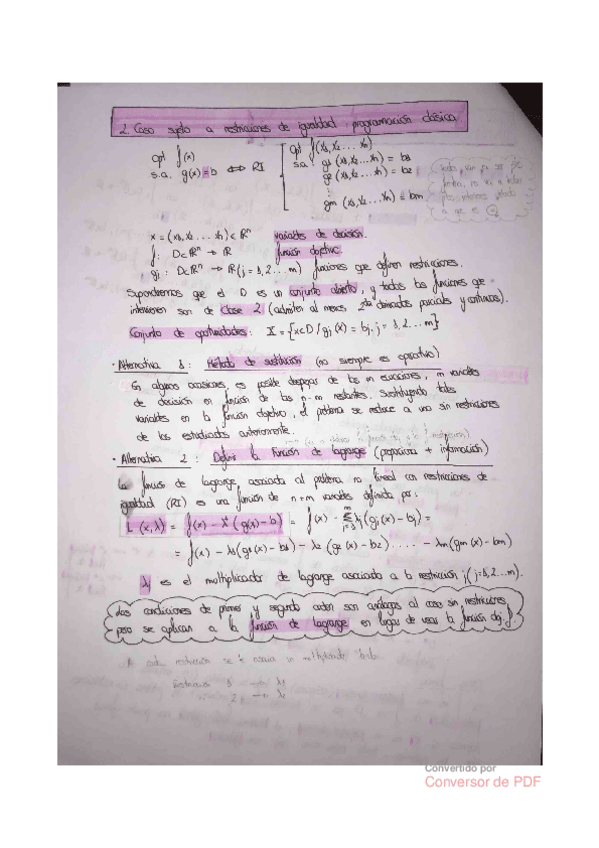 2. Caso sujeto a restricciones de igualdad: programación clásica
Opt f(x)
s.a. g(x)=b ⟺ RI
Opt f(x1,x2...xn)
s.a. g1(x1,x2...xn) = b1
g2(x1,x2...xn) = b2
⋮
gm(x1,x2...xn) = bm
x = (x1,x2...xn) ∈ ℝⁿ variables de decisión.
f: D⊂ℝⁿ → ℝ función objetivo.
gj: D⊂ℝⁿ → ℝ (j=1,2...m) funciones que definen restricciones.
Supondremos que el D es un conjunto abierto, y todas las funciones que
intervienen son de clase 2 (admiten al menos 2das derivadas parciales y continuas).
Conjunto de oportunidades: X = {x∈D / gj(x) = bj, j=1,2...m}
· Alternativa 1: Método de sustitución (no siempre es operativo)
En algunas ocasiones, es posible despejar de las m ecuaciones, m variables
de decisión en función de las n-m restantes. Sustituyendo tales
variables en la función objetivo, el problema se reduce a uno sin restricciones
de los estudiados anteriormente.
· Alternativa 2: Definir la función de Lagrange (proporciona + información)
La función de Lagrange asociada al problema no lineal con restricciones de
igualdad (RI) es una función de n+m variables definida por:
L(x,λ) = f(x) - λᵗ(g(x)-b) = f(x) - Σ λj(gj(x)-bj) =
j=1
m
= f(x) - λ1(g1(x)-b1) - λ2(g2(x)-b2) ..... - λm(gm(x)-bm)
λj es el multiplicador de Lagrange asociado a la restricción j (j=1,2...m).
Las condiciones de primer y segundo orden son análogas al caso sin restricciones
pero se aplican a la función de Lagrange en lugar de usar la función obj.
A cada restricción se le asocia un multiplicador
Restricción 1 → λ1
2 → λ2
Convertido por
Conversor de PDF